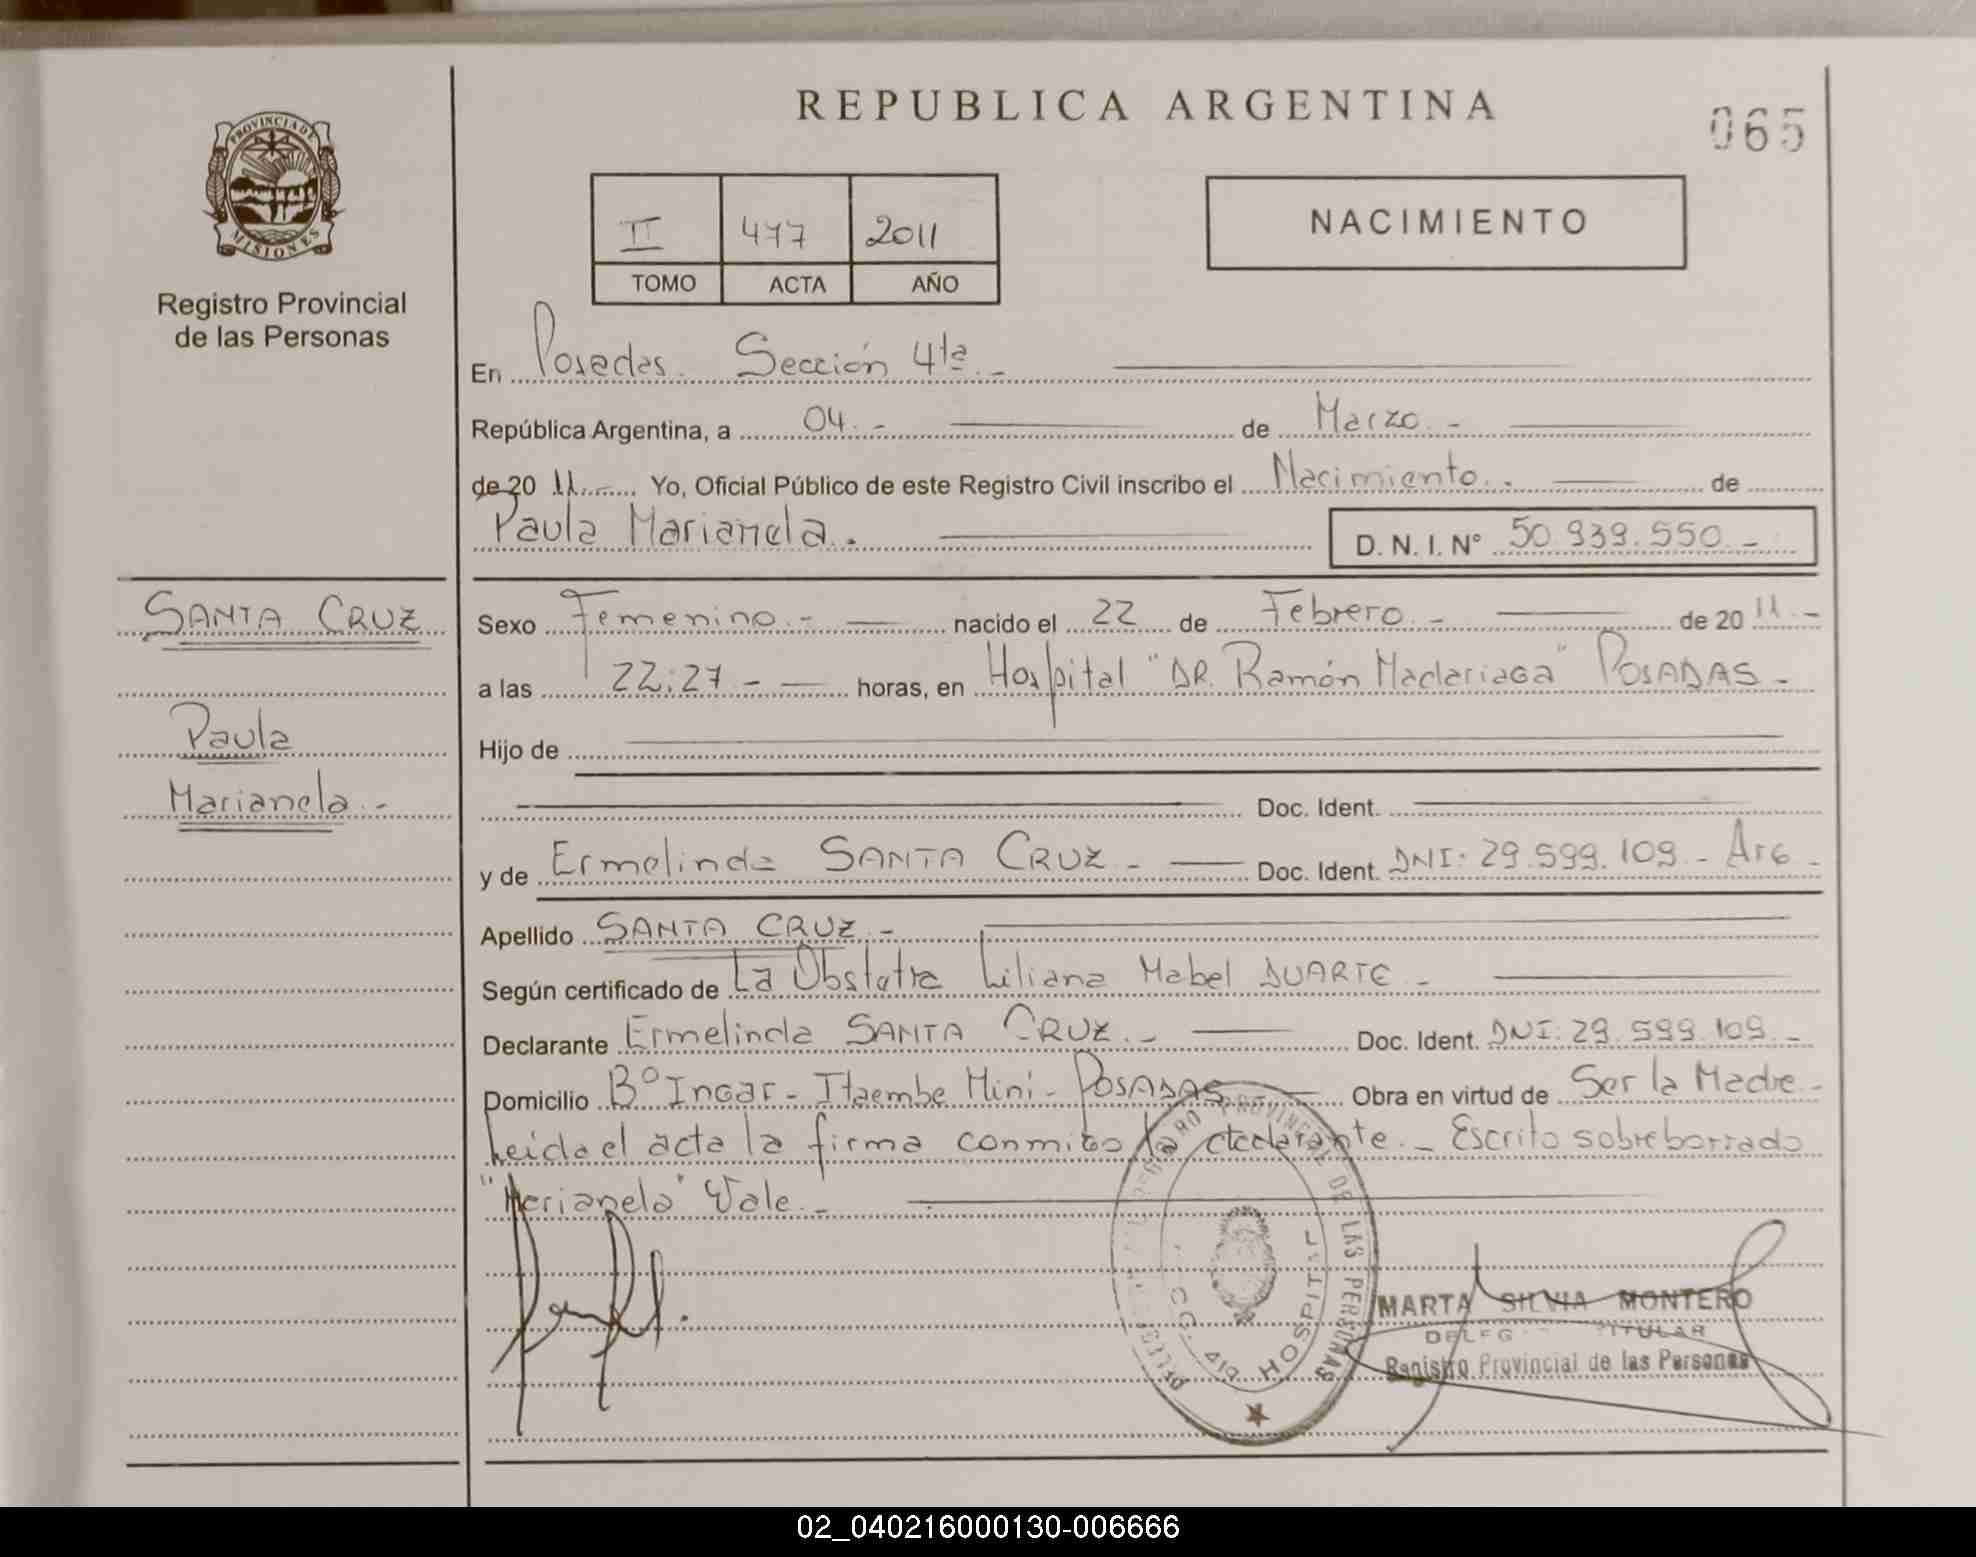 REPUBLICA ARGENTINA
065
PROVINCIA DE
MISIONES
Registro Provincial
de las Personas
II 477 2011
TOMO ACTA AÑO
NACIMIENTO
En Posadas. Sección 4ta.-
República Argentina, a 04.- de Marzo.-
de 20 11.- Yo, Oficial Público de este Registro Civil inscribo el Nacimiento.- de
Paula Marianela. D. N. I. Nº 50.939.550.-
SANTA CRUZ
Paula
Marianela.-
Sexo Femenino.- nacido el 22 de Febrero.- de 20 11.-
a las 22:27.- horas, en Hospital "DR. Ramón Madariaga" POSADAS.-
Hijo de
Doc. Ident.
y de Ermelinda SANTA CRUZ.- Doc. Ident. DNI: 29.599.109.- Arg.-
Apellido SANTA CRUZ.-
Según certificado de La Obstetra Liliana Mabel DUARTE.-
Declarante Ermelinda SANTA CRUZ.- Doc. Ident. DNI: 29.599.109.-
Domicilio Bº Ingar - Itaembe Mini - POSADAS Obra en virtud de Ser la Madre.-
Leida el acta la firma conmigo la declarante.- Escrito sobreborrado
"Marianela" Vale.-
REGISTRO PROVINCIAL DE LAS PERSONAS
HOSPITAL
MARTA SILVIA MONTERO
TITULAR
Registro Provincial de las Personas
02_040216000130-006666